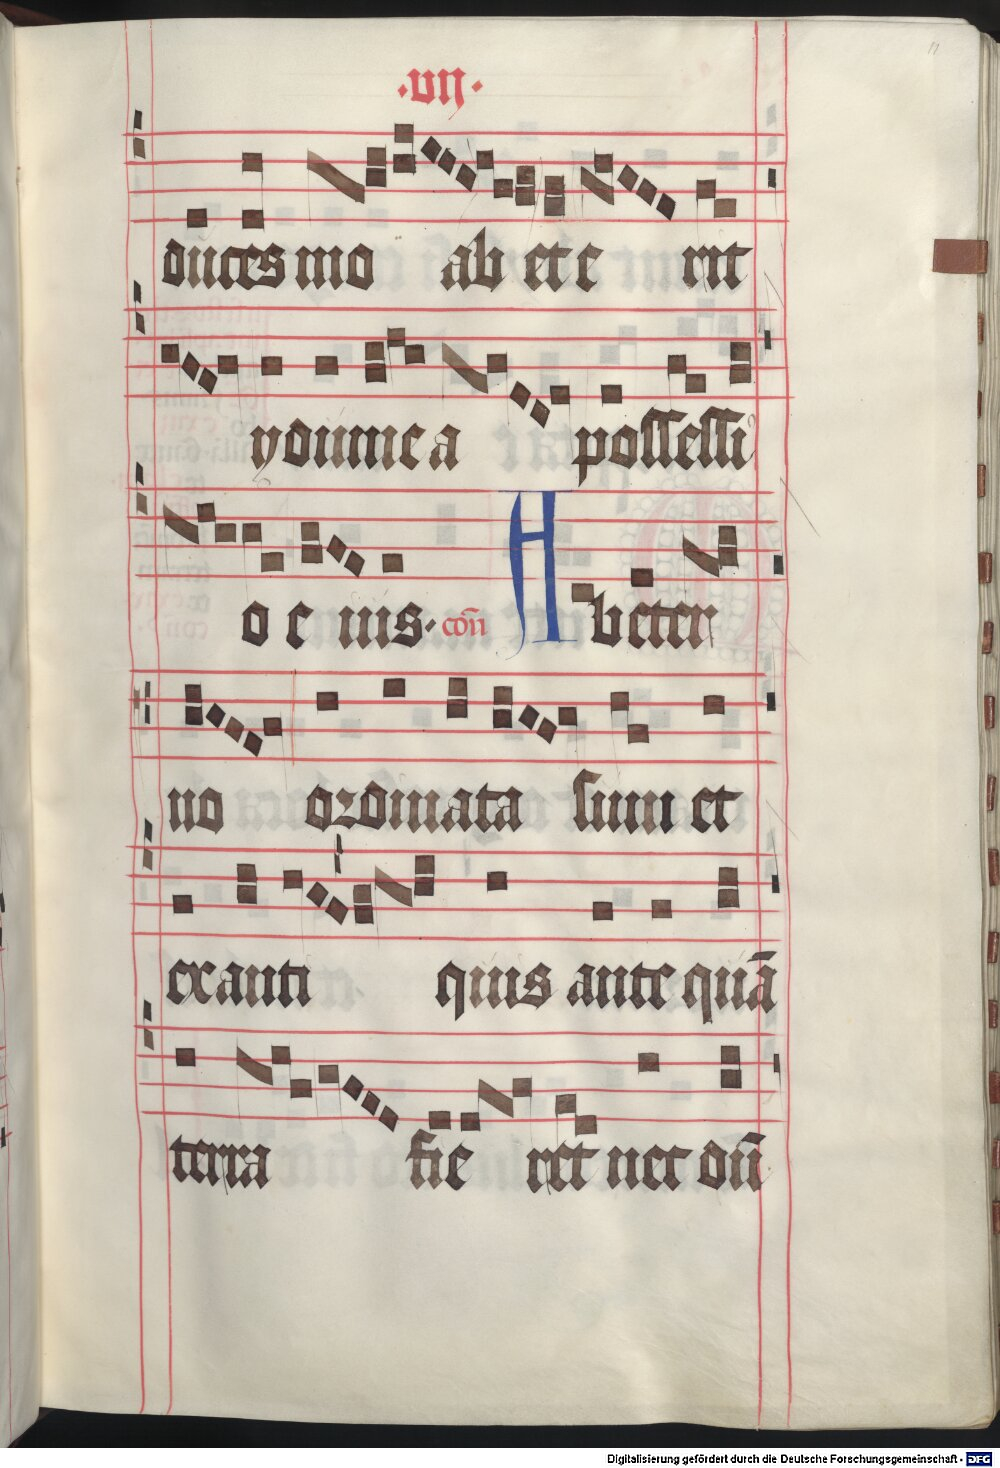 ·vii·
ducesmo ab et e rit
ydumea possessi
o e ius· coñ A b eter
no ordinata sum et
ex anti quis ante quā
terra fie ret nec dū
Digitalisierung gefördert durch die Deutsche Forschungsgemeinschaft - DFG